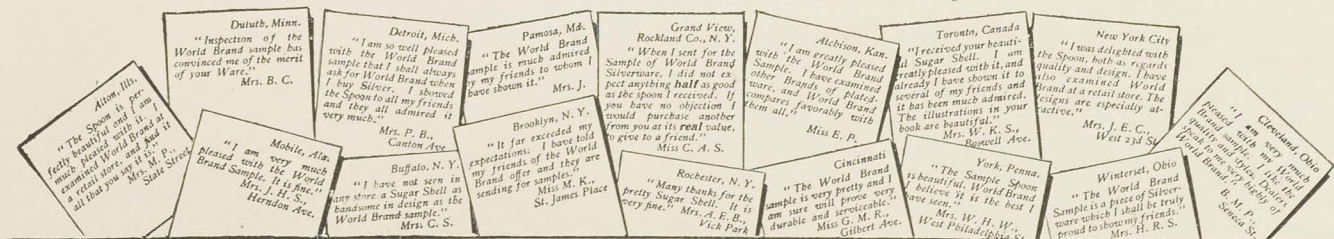 Alton, Ills.
"The Spoon is per-
fectly beautiful and I am
much pleased with it. I
examined World Brand at
a retail store, and find it
all that you say it is."
Mrs. M. P.,
State Street
Duluth, Minn.
"Inspection of the
World Brand sample has
convinced me of the merit
of your Ware."
Mrs. B. C.
Mobile, Ala.
"I am very much
pleased with the World
Brand Sample. It is fine."
Mrs. J. H. S.,
Herndon Ave.
Detroit, Mich.
"I am so well pleased
with the World Brand
sample that I shall always
ask for World Brand when
I buy Silver. I showed
the Spoon to all my friends
and they all admired it
very much."
Mrs. P. B.,
Canton Ave
Buffalo, N. Y.
"I have not seen in
any store a Sugar Shell as
handsome in design as the
World Brand sample."
Mrs. C. S.
Pamosa, Md.
"The World Brand
sample is much admired
by my friends to whom I
have shown it."
Mrs. J.
Brooklyn, N. Y.
"It far exceeded my
expectations. I have told
my friends of the World
Brand offer and they are
sending for samples."
Miss M. K.,
St. James Place
Grand View,
Rockland Co., N. Y.
"When I sent for the
Sample of World Brand
Silverware, I did not ex-
pect anything half as good
as the spoon I received. If
you have no objection I
would purchase another
from you at its real value,
to give to a friend."
Miss C. A. S.
Rochester, N. Y.
"Many thanks for the
pretty Sugar Shell. It is
very fine." Mrs. A. E. B.,
Vick Park
Atchison, Kan.
"I am greatly pleased
with the World Brand
Sample. I have examined
other Brands of plated-
ware, and World Brand
compares favorably with
them all."
Miss E. P.
Cincinnati
"The World Brand
sample is very pretty and I
am sure will prove very
durable and serviceable."
Miss G. M. R.,
Gilbert Ave.
Toronto, Canada
"I received your beauti-
ful Sugar Shell. I am
greatly pleased with it, and
already I have shown it to
several of my friends and
it has been much admired.
The illustrations in your
book are beautiful."
Mrs. W. K. S.,
Boswell Ave.
York, Penna.
"The Sample Spoon
is beautiful. World Brand
I believe it is the best I
have seen."
Mrs. W. H. W.,
West Philadelphia S
New York City
"I was delighted with
the Spoon, both as regards
quality and design. I have
also examined World
Brand at a retail store. The
designs are especially at-
tractive."
Mrs. J. E. C.,
West 23d St.
Winterset, Ohio
"The World Brand
Sample is a piece of Silver-
ware which I shall be truly
proud to show my friends."
Mrs. H. R. S.
Cleveland, Ohio
"I am very much
pleased with my World
Brand sample. I like the
quality and style. Dealers
speak to me very highly of
World Brand."
B. M. P.,
Seneca St.